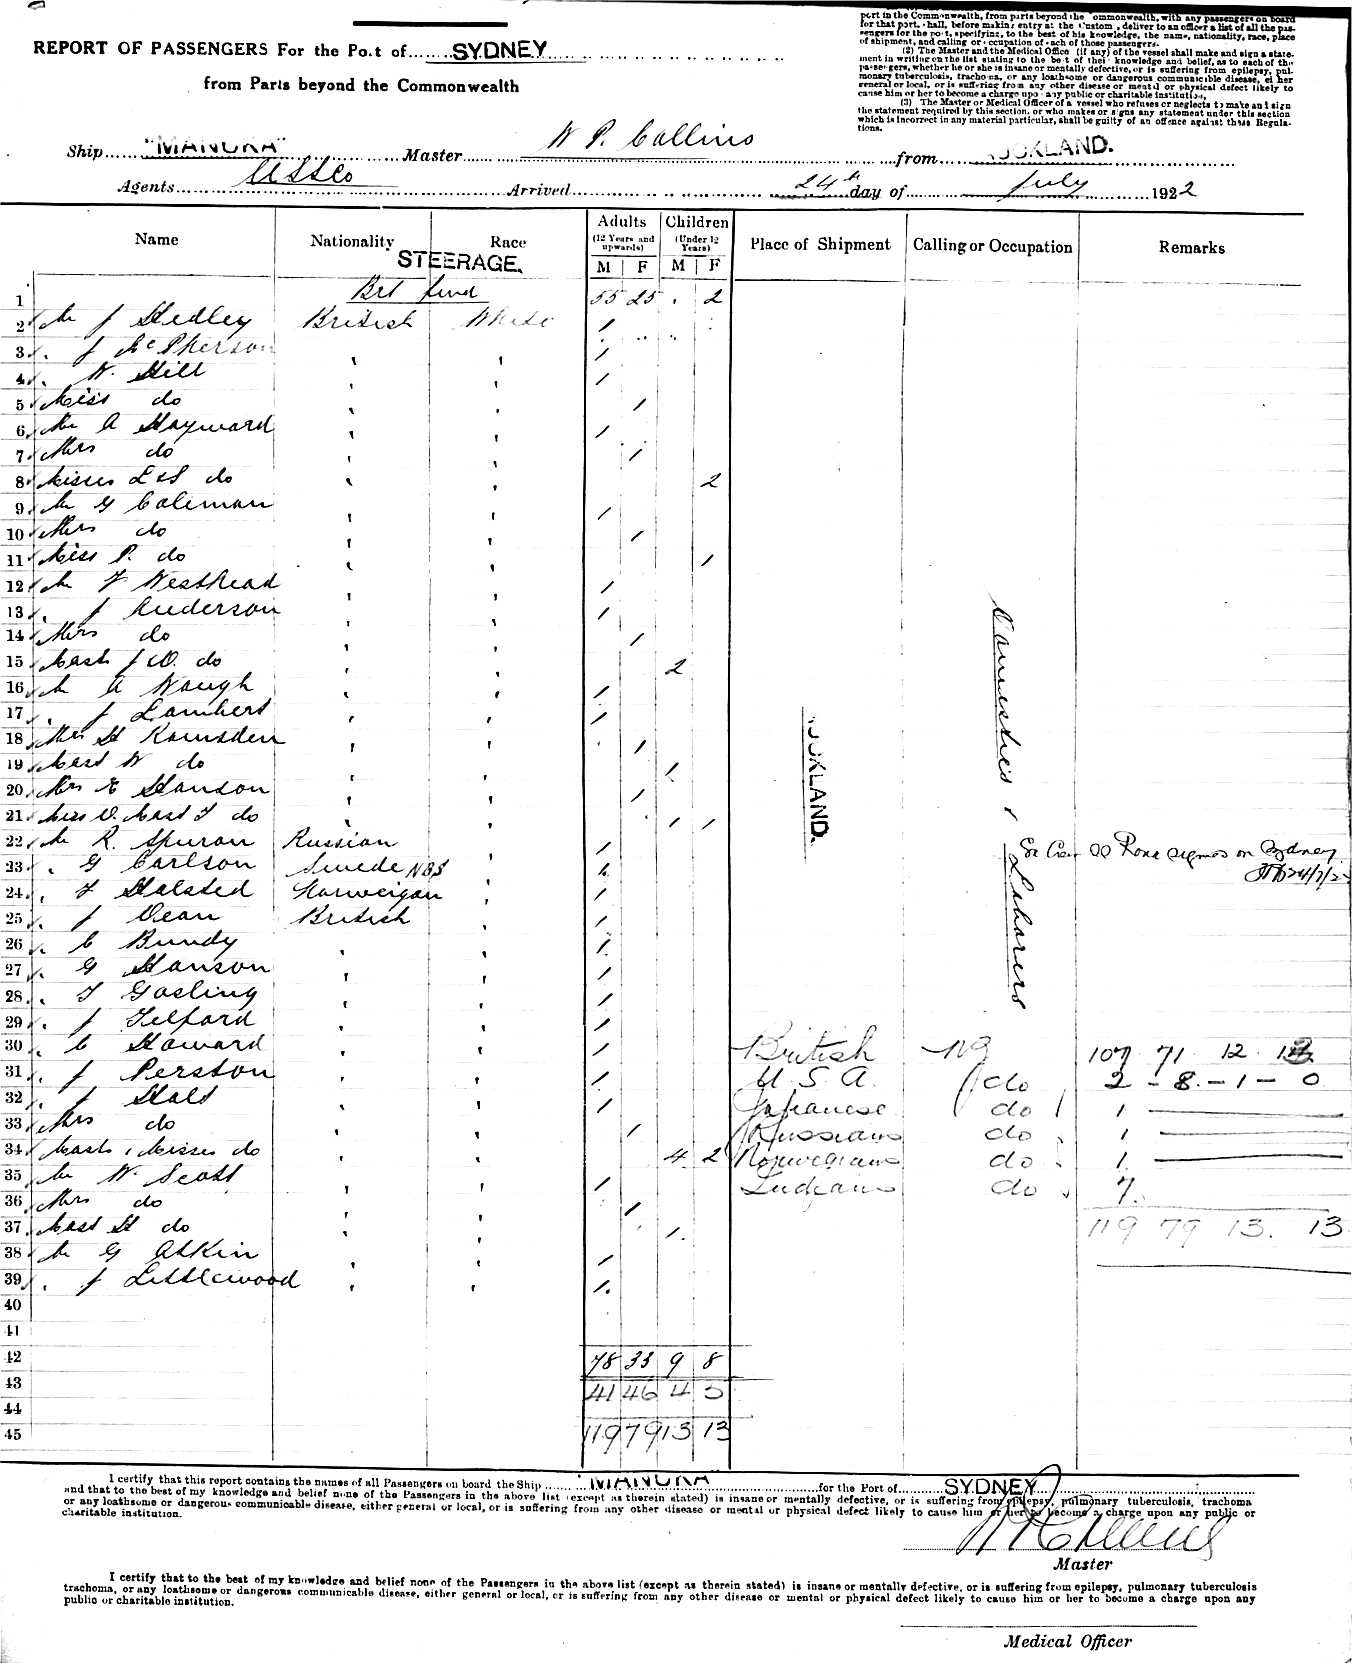 port in the Commonwealth, from parts beyond the Commonwealth, with any passengers on board
for that port, shall, before making entry at the Custom, deliver to an officer a list of all the pas-
sengers for the port, specifying, to the best of his knowledge, the name, nationality, race, place
of shipment, and calling or occupation of each of those passengers.
(2) The Master and the Medical Office (if any) of the vessel shall make and sign a state-
ment in writing on the list stating to the best of their knowledge and belief, as to each of the
passengers, whether he or she is insane or mentally defective, or is suffering from epilepsy, pul-
monary tuberculosis, trachoma, or any loathsome or dangerous communicable disease, either
general or local, or is suffering from any other disease or mental or physical defect likely to
cause him or her to become a charge upon any public or charitable institution.
(3) The Master or Medical Officer of a vessel who refuses or neglects to make and sign
the statement required by this section, or who makes or signs any statement under this section
which is incorrect in any material particular, shall be guilty of an offence against these Regula-
tions.
REPORT OF PASSENGERS For the Port of SYDNEY
from Parts beyond the Commonwealth
Ship "MANUKA" Master W P. Collins from AUCKLAND.
Agents USSCo Arrived 24th day of July 1922
Name Nationality Race Adults (12 Years and upwards) M F Children (Under 12 Years) M F Place of Shipment Calling or Occupation Remarks
STEERAGE.
1 Brt fwd 55 25 . 2
2 Mr J Hedley British White 1
3 " J McPherson " " 1
4 " W. Hill " " 1
5 Miss do " " 1
6 Mr A Hayward " " 1
7 Mrs do " " 1
8 Misses L & I do " " 2
9 Mr G Coleman " " 1
10 Mrs do " " 1
11 Miss P. do " " 1
12 Mr F Westhead " " 1
13 " J Anderson " " 1
14 Mrs do " " 1
15 Mast J & D. do " " 2
16 Mr A Waugh " " 1
17 " J Lambert " " 1
18 Mrs H Ramsden " " 1
19 Mast W do " " 1
20 Mrs E Hanson " " 1
21 Miss D. Mast F do " " 1 1
22 Mr R. Spuron Russian " 1
23 " G Carlson Swede NBS " 1
24 " F Halsted Norweigan " 1
25 " J Dean British " 1
26 " C Bundy " " 1
27 " G Hanson " " 1
28 " F Gosling " " 1
29 " J Telford " " 1
30 " C Howard " " 1
31 " J Perston " " 1
32 " J Holt " " 1
33 Mrs do " " 1
34 Mast & Misses do " " 4 2
35 Mr W. Scott " " 1
36 Mrs do " " 1
37 Mast H do " " 1
38 Mr G Atkin " " 1
39 " J Littlewood " " 1
40
41
42 78 33 9 8
43 41 46 4 5
44
45 119 79 13 13
AUCKLAND.
Domestics & Laborers
on Sydney
24/7/22
British 107 71 12 13
U S A. do 2 - 8 - 1 - 0
Japanese do 1
Russians do 1
Norwegians do 1
do 7
119 79 13. 13
I certify that this report contains the names of all Passengers on board the Ship "MANUKA" for the Port of SYDNEY
and that to the best of my knowledge and belief none of the Passengers in the above list (except as therein stated) is insane or mentally defective, or is suffering from epilepsy, pulmonary tuberculosis, trachoma
or any loathsome or dangerous communicable disease, either general or local, or is suffering from any other disease or mental or physical defect likely to cause him or her to become a charge upon any public or
charitable institution.
W P Collins
Master
I certify that to the best of my knowledge and belief none of the Passengers in the above list (except as therein stated) is insane or mentally defective, or is suffering from epilepsy, pulmonary tuberculosis
trachoma, or any loathsome or dangerous communicable disease, either general or local, or is suffering from any other disease or mental or physical defect likely to cause him or her to become a charge upon any
public or charitable institution.
Medical Officer